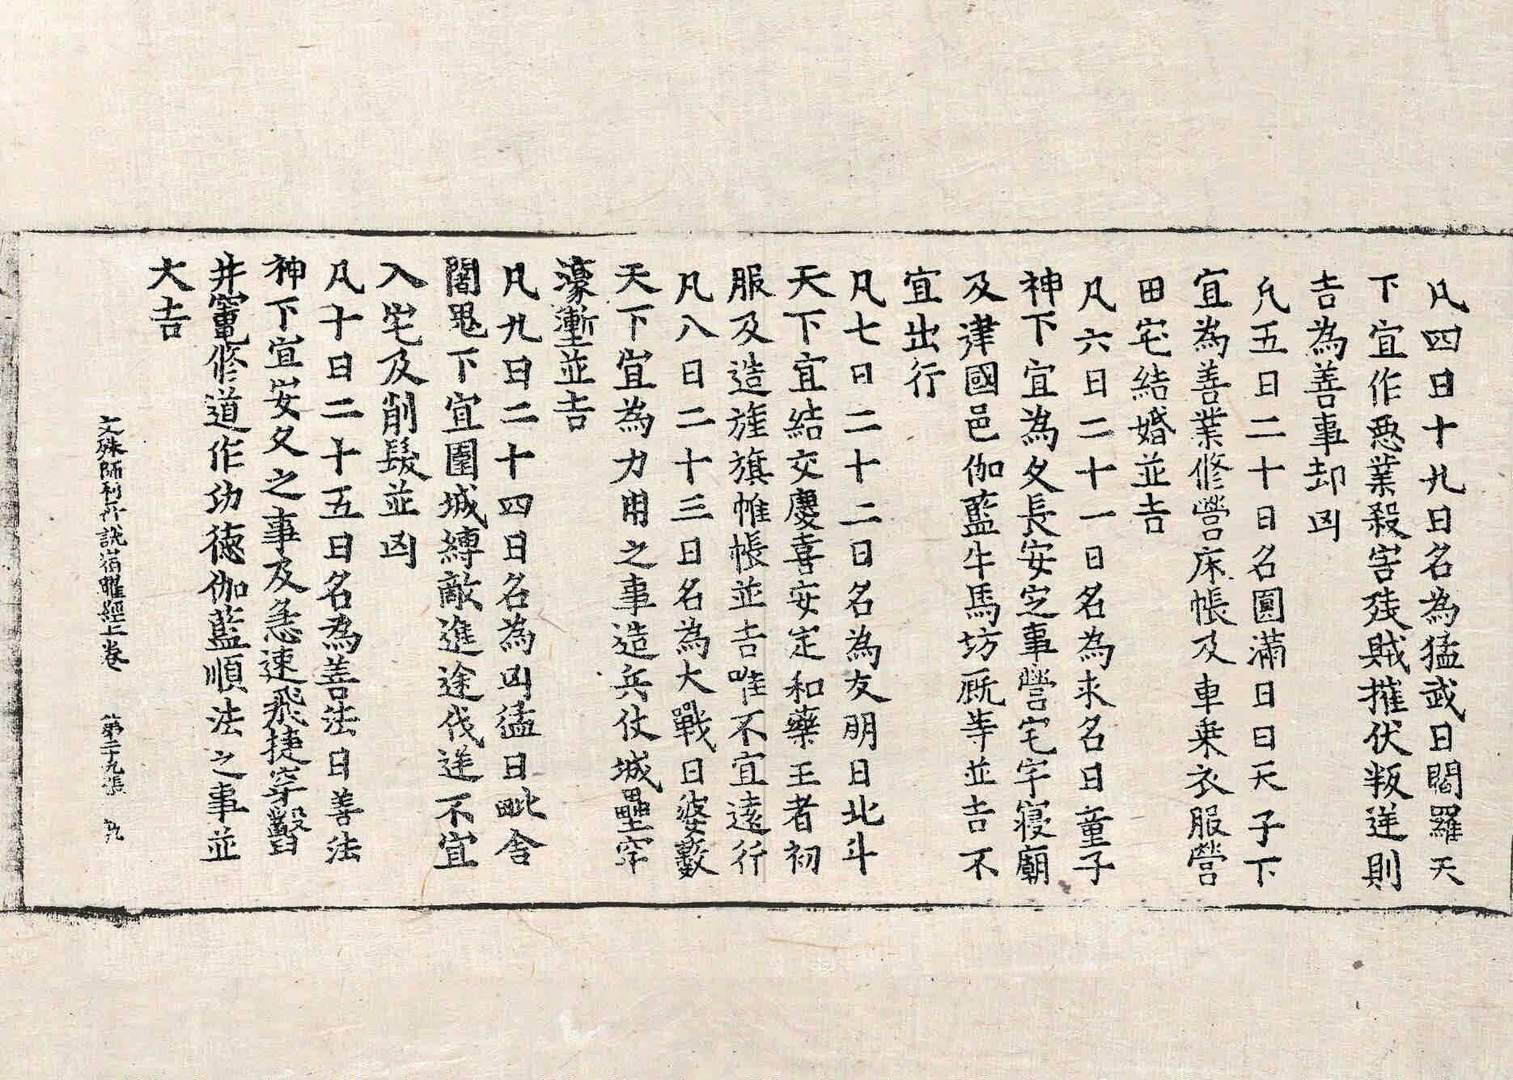 凡四日十九日名為猛武日閻羅天
下宜作惡業殺害残賊摧伏叛逆則
吉為善事却凶
凡五日二十日名圓滿日曰天子下
宜為善業修營床帳及車乗衣服營
田宅結婚並吉
凡六日二十一日名為求名日童子
神下宜為久長安定事營宅宇寝廟
及津國邑伽藍牛馬坊厩等並吉不
宜出行
凡七日二十二日名為友朋日北斗
天下宜結交慶喜安定和藥王者初
服及造旌旗帷帳並吉唯不宜遠行
凡八日二十三日名為大戰日婆藪
天下宜為力用之事造兵仗城壘穿
濠塹並吉
凡九日二十四日名為凶猛日毗舎
闍鬼下宜圍城縛敵進途伐逆不宜
入宅及削髮並凶
凡十日二十五日名為善法日善法
神下宜安久之事及急速飛捷穿鑿
井竃修道作功徳伽藍順法之事並
大吉
文殊師利所説宿曜經上卷 第二十九張